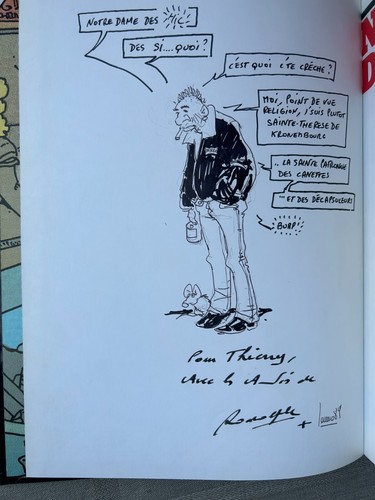 NOTRE DAME DES HIC!
DES SI....QUOI?
C'EST QUOI C'TE CRÈCHE?
MOI, POINT DE VUE
RELIGION, J'SUIS PLUTOT
SAINTE-THERESE DE
KRONEMBOURG
.. LA SAINTE PATRONNE
DES CANETTES
..ET DES DÉCAPSULEURS
BURP!
Pour Thierry,
Avec les Amitiés de
Rodolphe
+